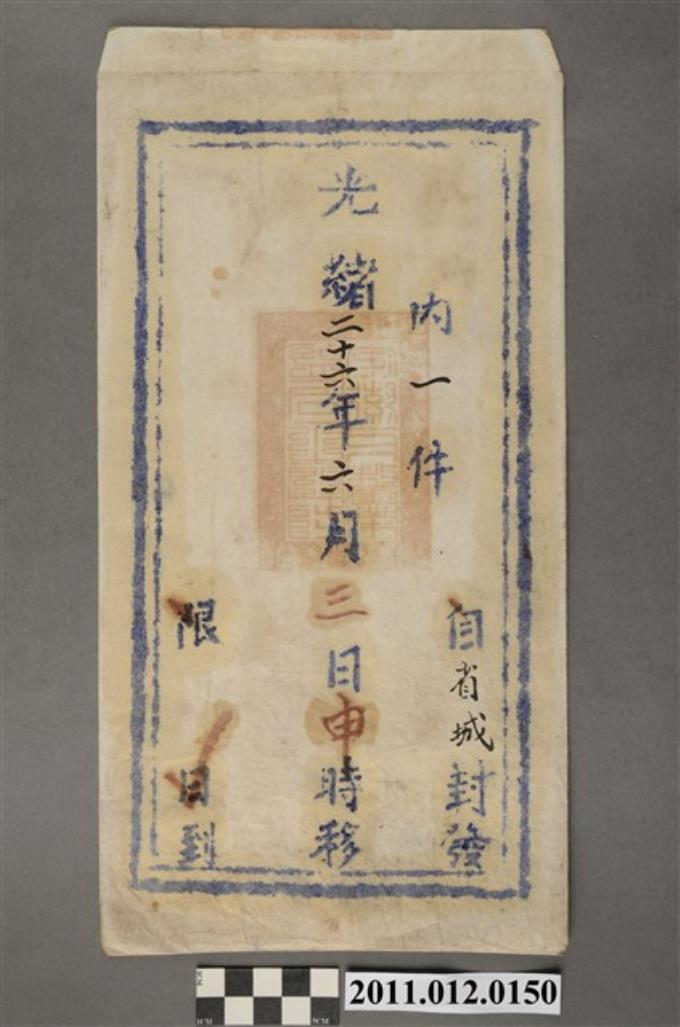 內一件
自省城封發
光緒二十六年六月三日申時移
限 日到
2011.012.0150